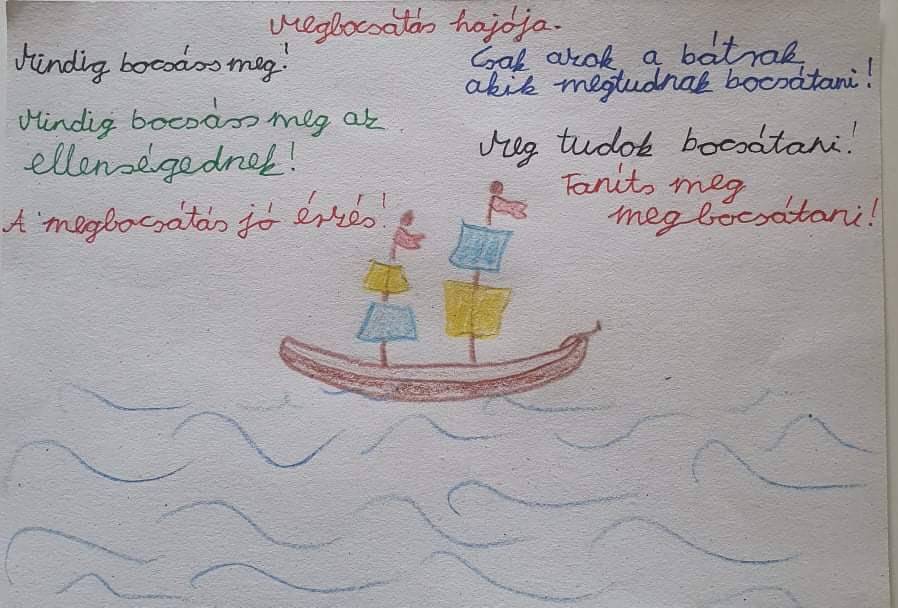 Megbocsátás hajója.
Mindig bocsáss meg!
Mindig bocsáss meg az
ellenségednek!
A megbocsátás jó érzés!
Csak azok a bátrak,
akik megtudnak bocsátani!
Meg tudok bocsátani!
Taníts meg
megbocsátani!